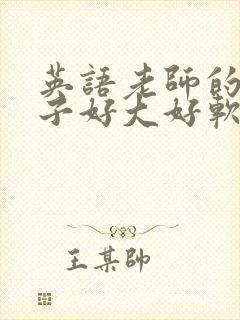 英語老師的
子好大好軟
王某帥